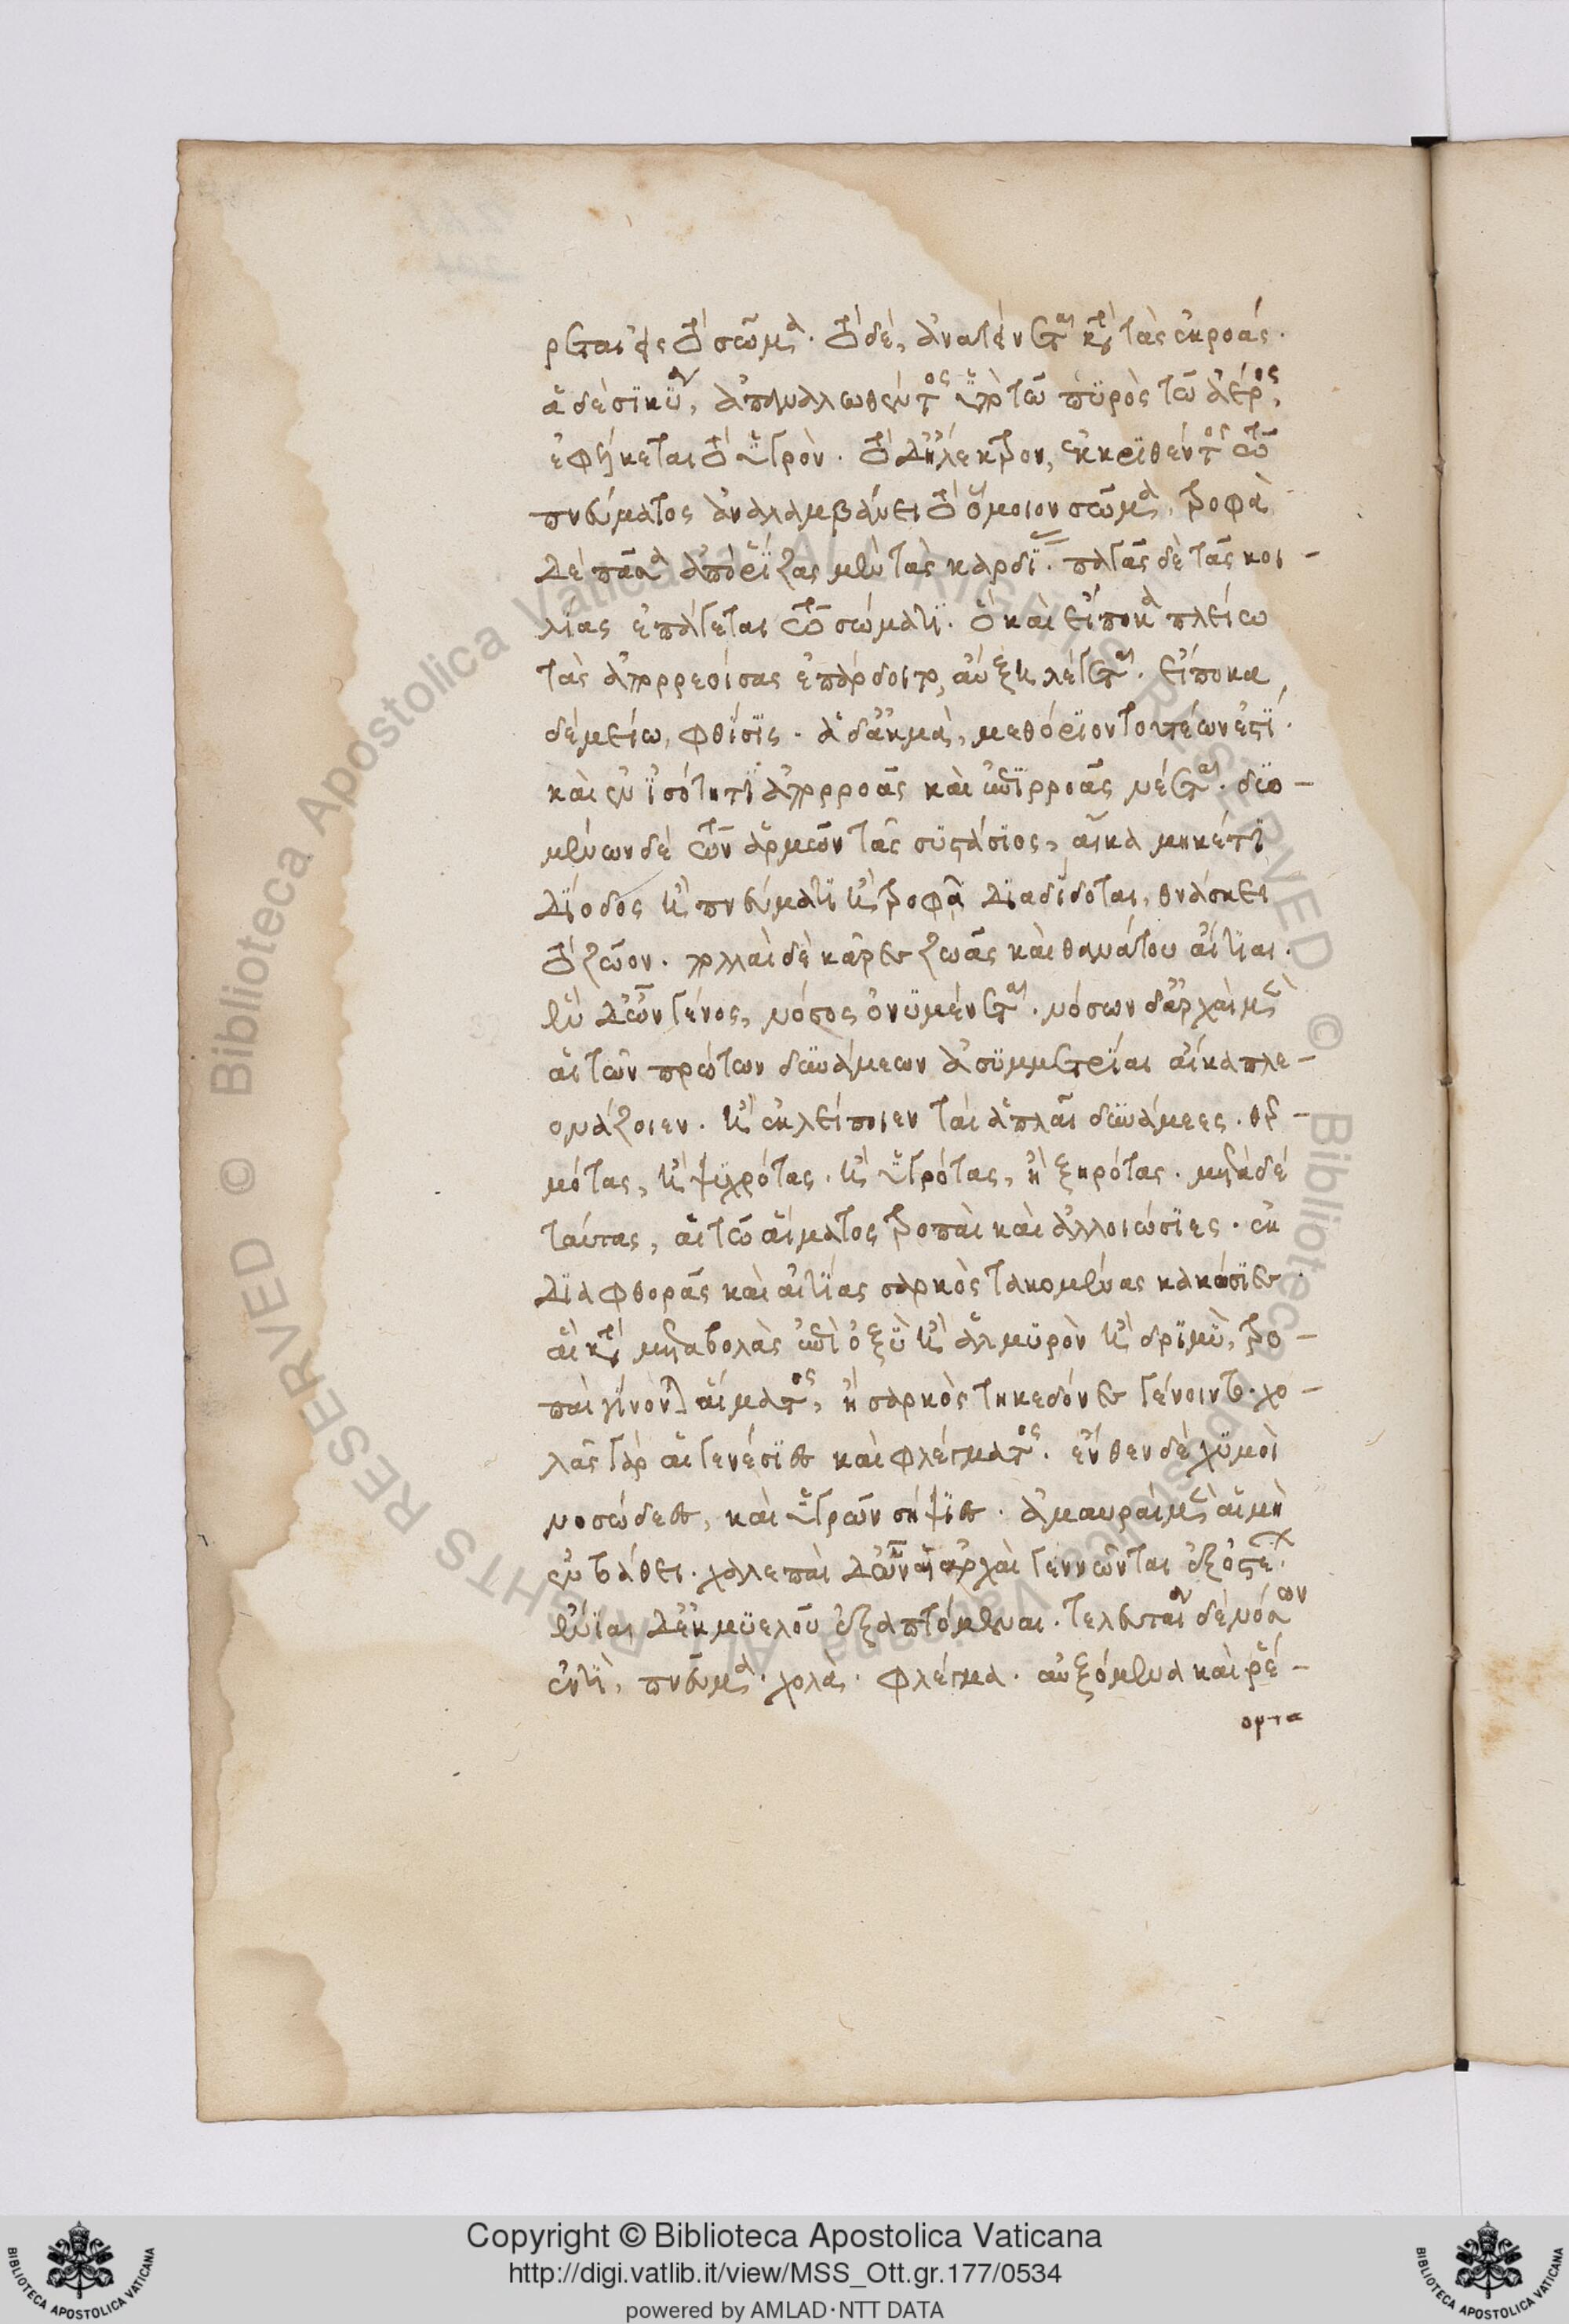 ρεται ἐς τὸ σῶμα. τὸ δὲ, ἀνατείνεται κατὰ τὰς ἐκροάς.
ἁ δὲ σϊκΰαν, ἀπαναλωθέντος ὑπὸ τῶ πϋρὸς τῶ ἀέρος,
ἐφέλκεται τὸ ὑγρόν. τὸ δ' ἤλεκτρον, ἐκκρϊθέντος τοῦ
πνεύματος ἀναλαμβάνει τὸ ὅμοιον σῶμα. τροφὰ
δὲ πᾶσα ἀπὸ ῥίζας μὲν τᾶς καρδί. παγᾶς δὲ τᾶς κοι-
λίας ἐπάγεται τῷ σώματϊ. ὃ καὶ εἴποκα πλείω
τᾶς ἀπορρεοίσας ἐπάρδοιτο, αὔξη λέγεται. εἴποκα
δὲ μείω, φθίσϊς. ἁ δ' ἀκμὰ, μεθόρϊον τουτέων ἐστί.
καὶ ἐν ἰσότητϊ ἀπορροᾶς καὶ ἐπϊρροᾶς νέεται. δϋο-
μένων δὲ τῶν ἁρμῶν τᾶς συστάσϊος, αἴκα μηκέτϊ
δίοδος ἢ πνεύματϊ ἢ τροφᾷ διαδίδοται, θνάσκει
τὸ ζῶον. πολλαὶ δὲ κᾶρες ζωᾶς καὶ θανάτου αἰτίαι.
ἓν δ' ὦν γένος, νόσος ὀνϋμαίνεται. νόσων δ' ἀρχαὶ μὲν
αἱ τῶν πρώτων δϋνάμεων ἀσϋμμετρϊαι αἴκα πλε-
ονάζοιεν. ἢ ἐκλείποιεν ταὶ ἁπλαῖ δϋνάμεες. θερ-
μότας, ἢ ψυχρότας. ἢ ὑγρότας, ἢ ξηρότας. μετὰ δὲ
ταύτας, αἱ τῶ αἵματος τροπαὶ καὶ ἀλλοιώσϊες. ἐκ
διαφθορᾶς καὶ αἰτίας σαρκὸς τακομένας κακώσϊες.
αἱ κατὰ μεταβολὰς ἐπὶ ὀξὺ ἢ ἁλμϋρὸν ἢ δρϊμὺ, τρο-
παὶ γίνονται αἵματος, ἢ σαρκὸς τηκεδόνες γένοιντο. χο-
λᾶς γὰρ αἱ γενέσϊες καὶ φλέγματος. ἔνθεν δὲ χϋμοὶ
νοσώδεες, καὶ ὑγρῶν σήψϊες. ἀμαυραὶ μὲν αἱ μὴ
ἐν βάθει. χαλεπαὶ δ' ὧν αἱ ἀρχαὶ γεννῶνται ἐξ ὀστέ.
ἔνϊαι δ' ἐκ μϋελοῦ ἐξαπτόμεναι. τελευταῖαν δὲ νόσων
ἐντὶ, πνεῦμα. χολά. φλέγμα. αὐξόμενα καὶ ῥέ-
οντα
Copyright © Biblioteca Apostolica Vaticana
http://digi.vatlib.it/view/MSS_Ott.gr.177/0534
powered by AMLAD·NTT DATA